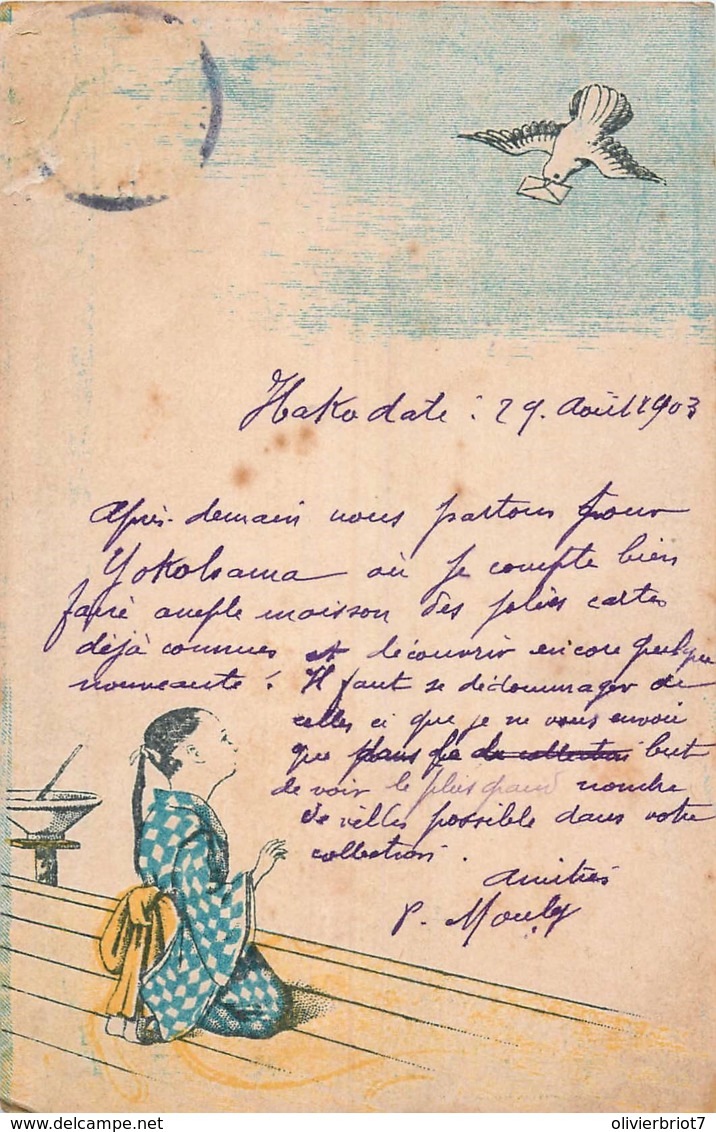 Hakodate : 29. Août 1903
Après-demain nous partons pour
Yokohama où je compte bien
faire ample moisson des jolies cartes
déjà connues et découvrir encore quelque
nouveauté. Il faut se dédommager de
celles ci que je ne vous envoie
que dans le but
de voir le plus grand nombre
de villes possible dans votre
collection.
Amitiés
P. Mouly
www.delcampe.net
olivierbriot7